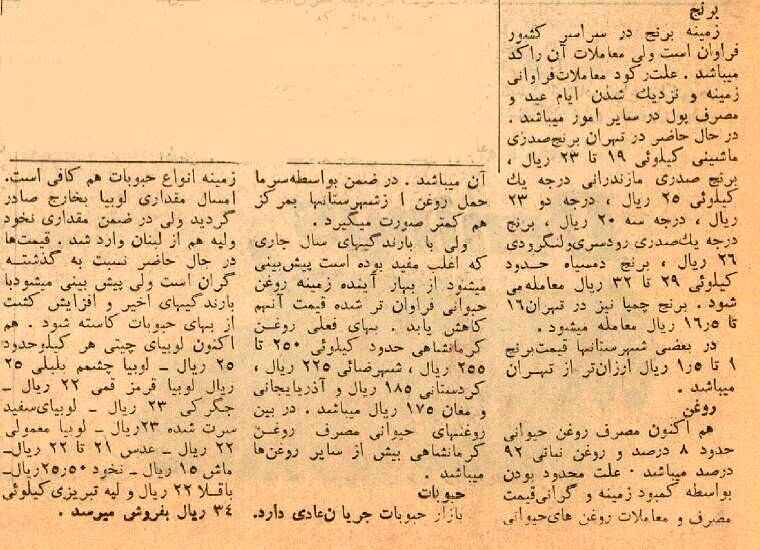 برنج
زمینه برنج در سراسر کشور
فراوان است ولی معاملات آن راکد
میباشد . علت‌رکود معاملات‌فراوانی
زمینه و نزدیک شدن ایام عید و
مصرف پول در سایر امور میباشد .
در حال حاضر در تهران برنج‌صدری
ماشینی کیلوئی ۱۹ تا ۲۳ ریال ،
برنج صدری مازندرانی درجه یک
کیلوئی ۲۵ ریال ، درجه دو ۲۳
ریال ، درجه سه ۲۰ ریال ، برنج
درجه یک‌صدری رودسری‌ولنگرودی
۲۶ ریال ، برنج دمسیاه حدود
کیلوئی ۲۹ تا ۳۲ ریال معامله‌می
شود . برنج چمپا نیز در تهران۱۶
تا ۱۶٫۵ ریال معامله میشود .
در بعضی شهرستانها قیمت‌برنج
۱ تا ۱٫۵ ریال ارزان‌تر از تهران
میباشد .
روغن
هم اکنون مصرف روغن حیوانی
حدود ۸ درصد و روغن نباتی ۹۲
درصد میباشد . علت محدود بودن
بواسطه کمبود زمینه و گرانی‌قیمت
مصرف و معاملات روغن های‌حیوانی
آن میباشد . در ضمن بواسطه‌سرما
حمل روغن ا زشهرستانها بمرکز
هم کمتر صورت میگیرد .
ولی با بارندگیهای سال جاری
که اغلب مفید بوده است پیش‌بینی
میشود از بهار آینده زمینه روغن
حیوانی فراوان تر شده قیمت آنهم
کاهش یابد . بهای فعلی روغن
کرمانشاهی حدود کیلوئی ۲۵۰ تا
۲۵۵ ریال ، شهرضائی ۲۲۵ ریال ،
کردستانی ۱۸۵ ریال و آذربایجانی
و مغان ۱۷۵ ریال میباشد . در بین
روغنهای حیوانی مصرف روغن
کرمانشاهی بیش از سایر روغن‌ها
میباشد .
حبوبات
بازار حبوبات جریا ن‌عادی دارد.
زمینه انواع حبوبات هم کافی است.
امسال مقداری لوبیا بخارج صادر
گردید ولی در ضمن مقداری نخود
ولپه هم از لبنان وارد شد . قیمت‌ها
در حال حاضر نسبت به گذشته
گران است ولی پیش بینی میشودبا
بارندگیهای اخیر و افزایش کشت
از بهای حبوبات کاسته شود . هم
اکنون لوبیای چیتی هر کیلوحدود
۲۵ ریال ــ لوبیا چشمم بلبلی ۲۵
ریال لوبیا قرمز قمی ۲۲ ریال ــ
جگرکی ۲۳ ریال ــ لوبیای‌سفید
سرت شده ۲۳ریال ــ لوبیا معمولی
۲۲ ریال ــ عدس ۲۱ تا ۲۲ ریال‌ــ
ماش ۱۵ ریال ــ نخود ۲۵٫۵۰ریال‌ــ
باقلا ۲۲ ریال و لپه تبریزی‌کیلوئی
۳۴ ریال بفروش میرسد .